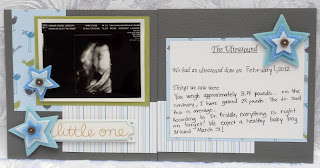 little one
The Ultrasound
We had an ultrasound done on February 1, 2012.
Things we saw were:
You weigh approximately 3.14 pounds... on the
contrary, I have gained 29 pounds. The Dr. said
this is average.
According to Dr. Friddle, everything is right
on target! We expect a healthy baby boy
around March 31!